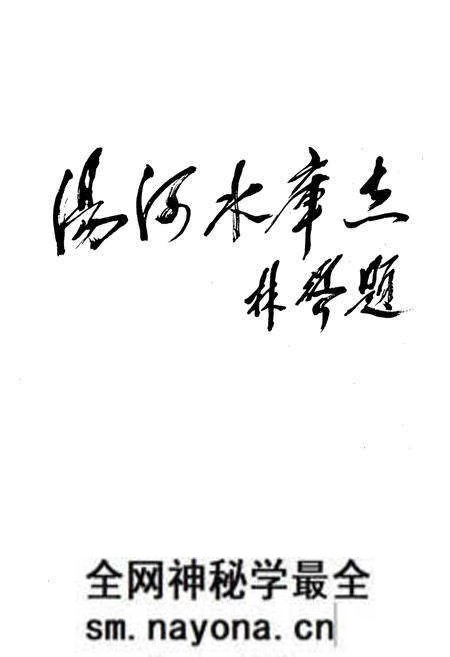 汤河水库志
林声题
全网神秘学最全
sm.nayona.cn